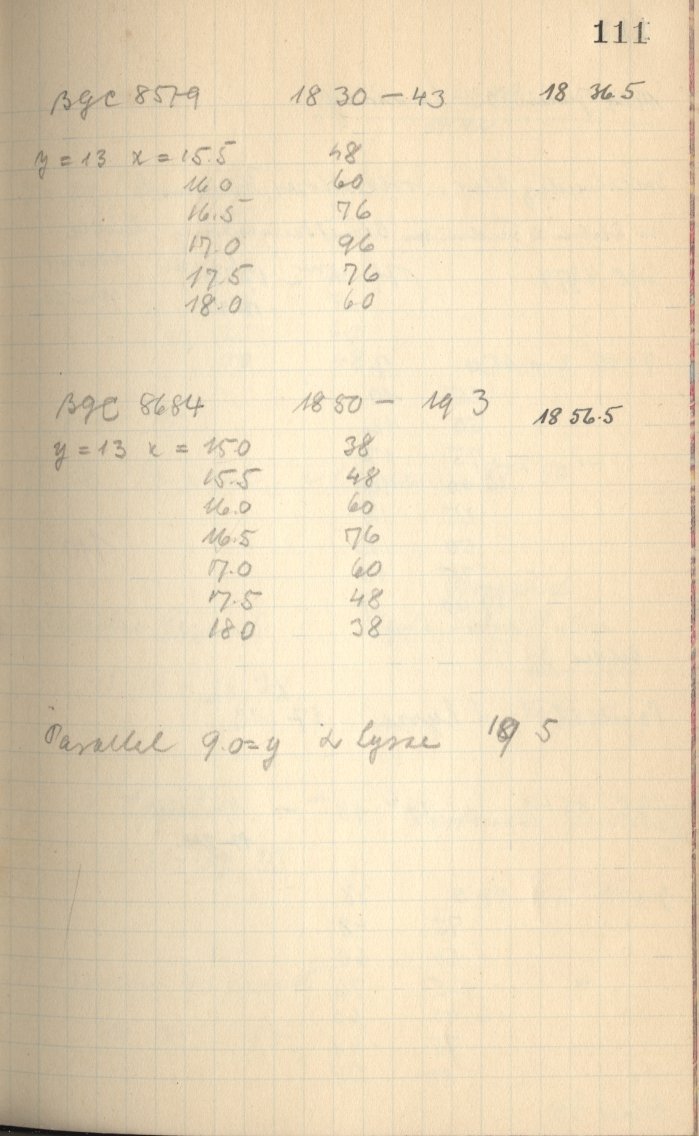 111
BGC 8579 18 30 - 43 18 36.5
y = 13 x = 15.5 48
16.0 60
16.5 76
17.0 96
17.5 76
18.0 60
BGC 8684 18 50 - 19 3 18 56.5
y = 13 x = 15.0 38
15.5 48
16.0 60
16.5 76
17.0 60
17.5 48
18.0 38
Parallel 9.0 = y α Lyrae 19 5